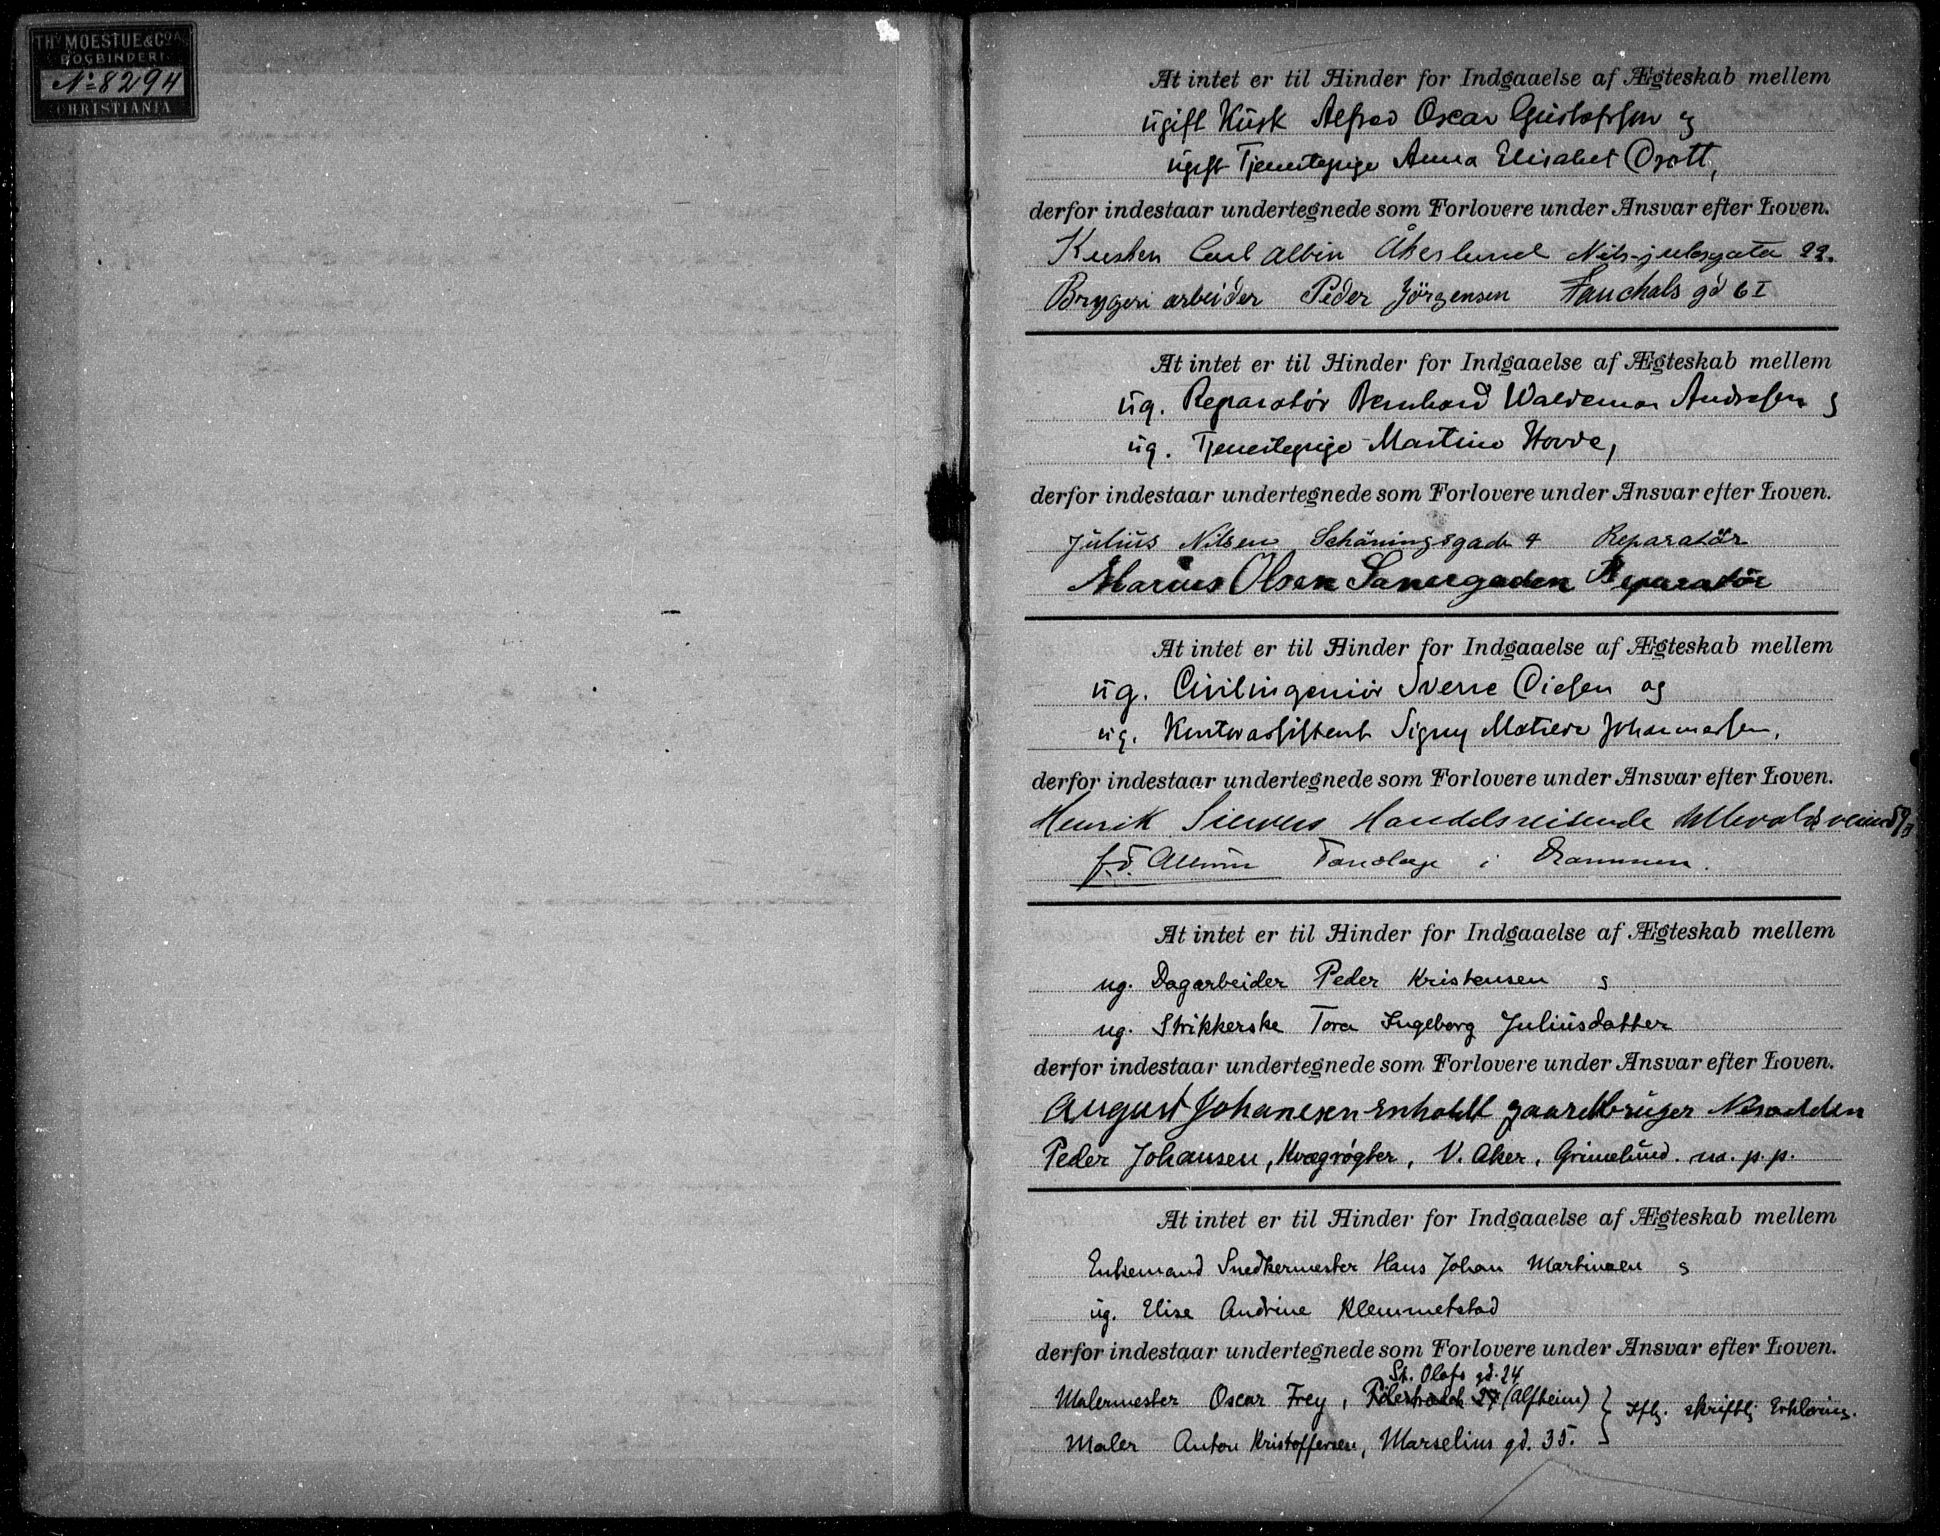 THV MOESTUE & Co
BOGBINDERI
No 8294
CHRISTIANIA
At intet er til Hinder for Indgaaelse af Ægteskab mellem
ugift Kusk Alfred Oscar Gustafssen og
ugift Tjenestepige Anna Elisabet
derfor indestaar undertegnede som Forlovere under Ansvar efter Loven.
Kusken Carl Albin Åkerlund Nils-julsgata 22.
Bryggeri arbeider Peder Jörgensen Fauchals gd 6 I
At intet er til Hinder for Indgaaelse af Ægteskab mellem
ug. Reparatør Bernhard Waldemar Andresen og
ug. Tjenestepige Martine Hovde,
derfor indestaar undertegnede som Forlovere under Ansvar efter Loven.
Julius Nilsen Schöningsgade 4 Reparatör
Marius Olsen Sannergaden Reparatör
At intet er til Hinder for Indgaaelse af Ægteskab mellem
ug. Civilingeniør Sverre Diesen og
ug. Kontorassistent Signy Johannessen,
derfor indestaar undertegnede som Forlovere under Ansvar efter Loven.
Henrik Sievers Handelsreisende Ullevoldsveien
Tandlæge i Drammen.
At intet er til Hinder for Indgaaelse af Ægteskab mellem
ug. Dagarbeider Peder Kristensen og
ug. Strikkerske Tora Ingeborg Juliusdatter
derfor indestaar undertegnede som Forlovere under Ansvar efter Loven.
August Johansen gaardbruger Nesodden
Peder Johansen, Kvægrøgter, V. Aker, Grimelund. m. p. p.
At intet er til Hinder for Indgaaelse af Ægteskab mellem
Enkemand Snedkermester Hans Johan Martinsen og
ug. Elise Andrine Klemmetstad
derfor indestaar undertegnede som Forlovere under Ansvar efter Loven.
St. Olafs gd. 24
Malermester Oscar Frey, (Alfheim)
Maler Anton Kristoffersen, Marselius gd. 35. } Iflg. skriftlj Erklæring.